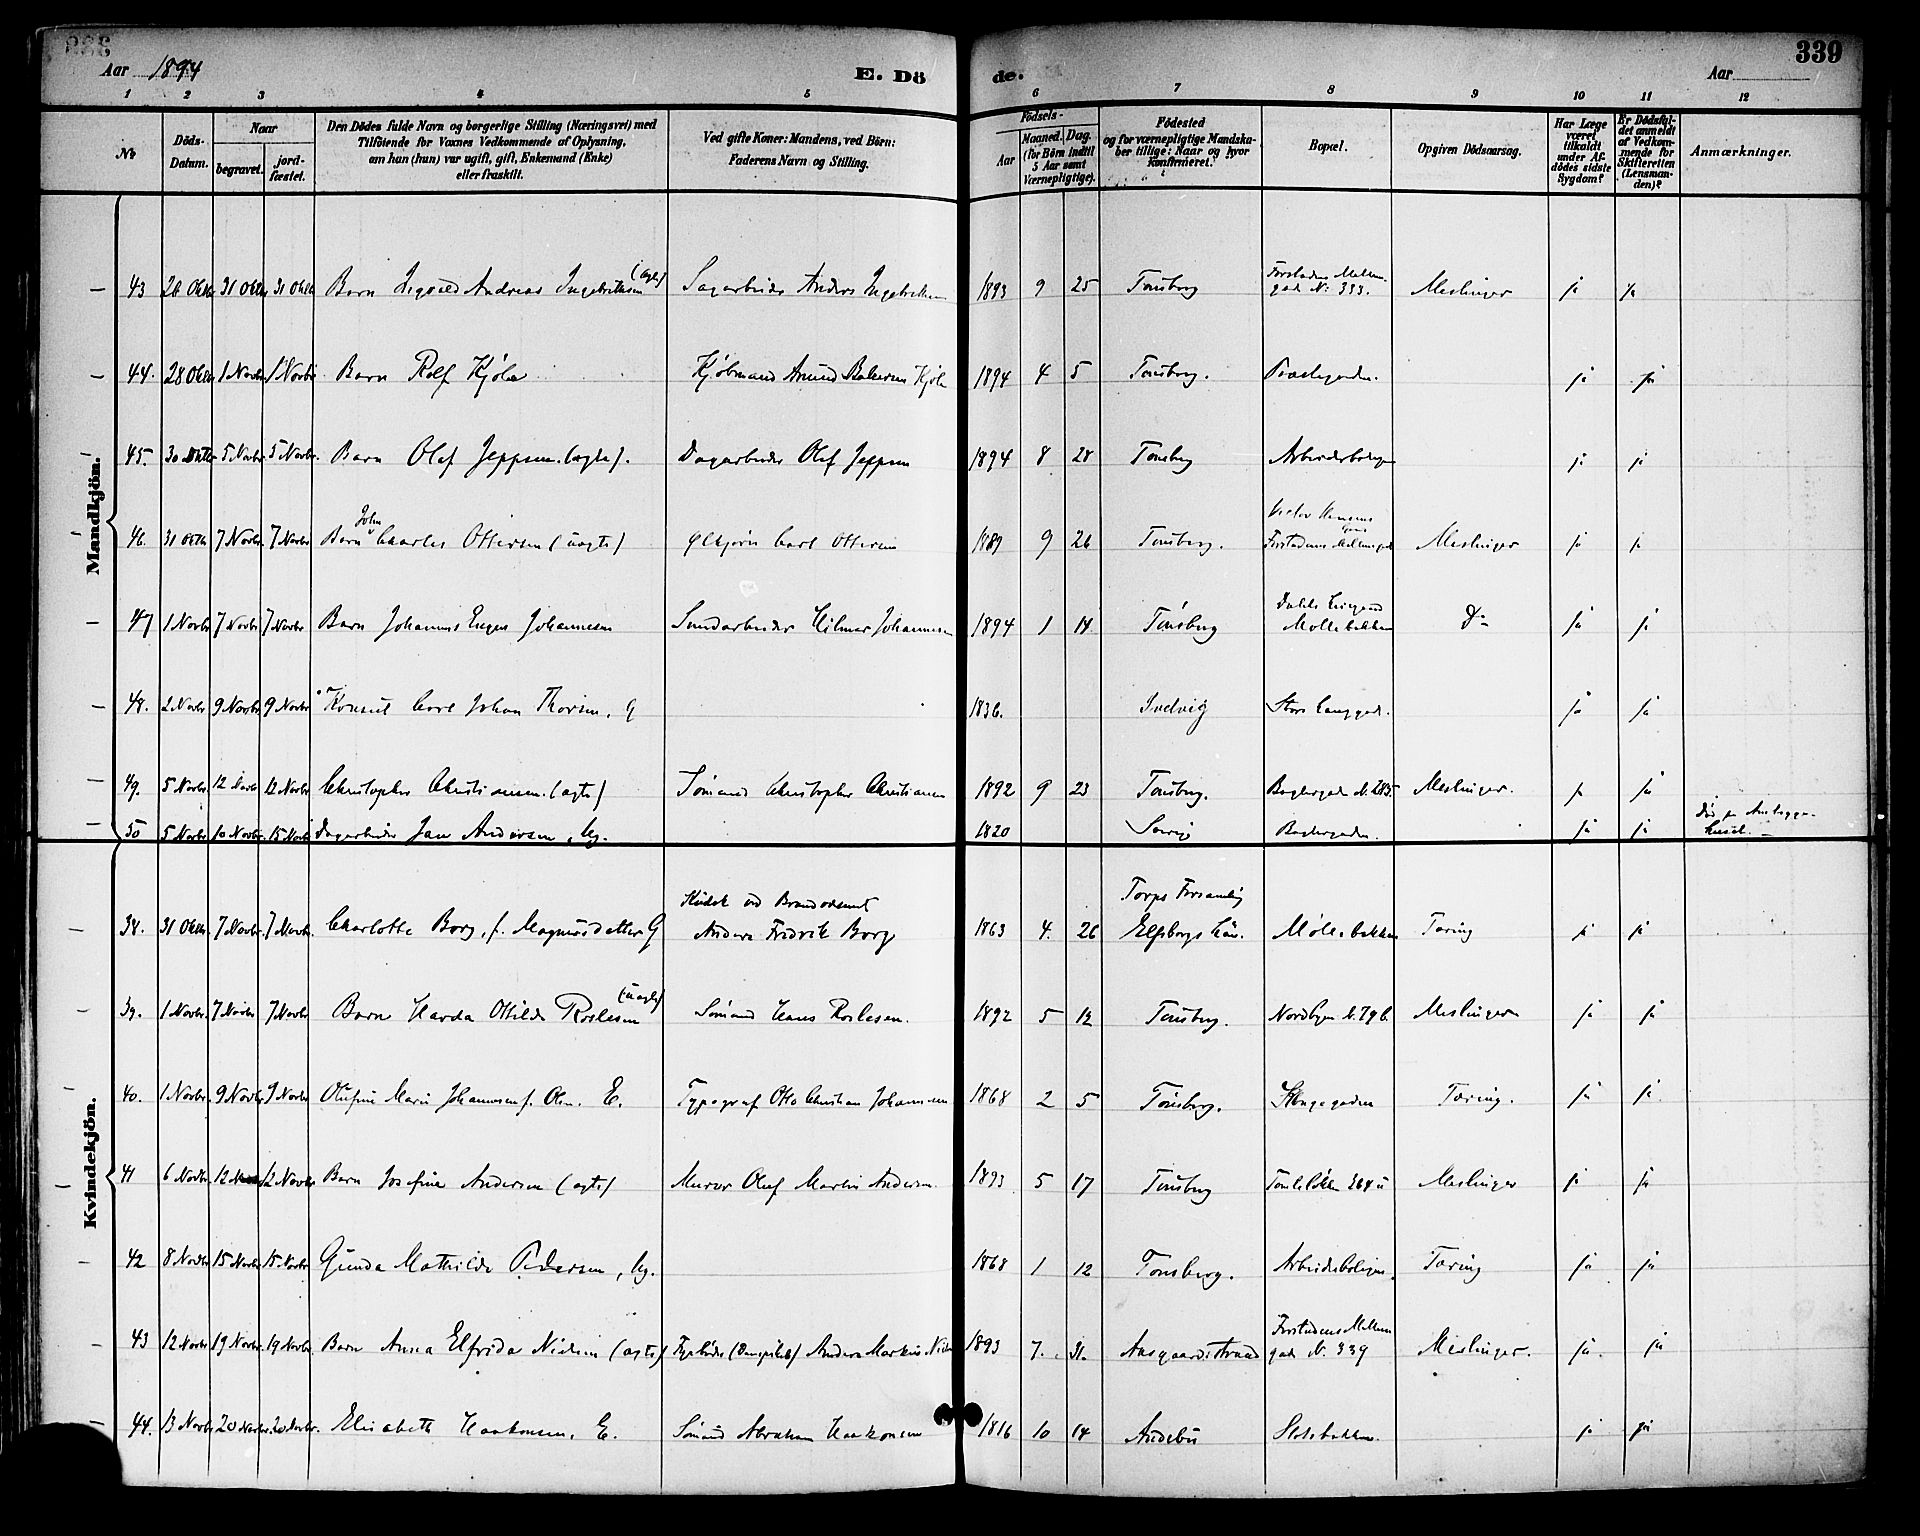 339
Aar 1894
E. Döde.
Aar
1 2 3 4 5 6 7 8 9 10 11 12
No
Döds-Datum.
Naar
begravet.
jord-fæstet.
Den Dödes fulde Navn og borgerlige Stilling (Næringsvei) med
Tilföiende for Voxnes Vedkommende af Oplysning,
om han (hun) var ugift, gift, Enkemand (Enke)
eller fraskilt.
Ved gifte Koner: Mandens, ved Börn:
Faderens Navn og Stilling.
Födsels-
Aar
Maaned. Dag.
(for Börn indtil
5 Aar samt
Værnepligtige).
Födested
og for værnepligtige Mandska-
ber tillige: Naar og hvor
konfirmeret.
Bopæl.
Opgiven Dödsaarsag.
Har Læge
været
tilkaldt
under Af-
dödes sidste
Sygdom?
Er Dödsfal-
det anmeldt
af Vedkom-
mende for
Skifteretten
(Lensman-
den)?
Anmærkninger.
Mandkjön.
43 28 Oktbr 31 Oktbr 31 Oktbr Barn Andreas Ingebriktsen (ægte) Anders Ingebriktsen 1893 9 25 Tønsberg Forstadens Mellem-
gade N: 333. Meslinger ja ja
44. 28 Oktbr 1 Novbr 1 Novbr Barn Rolf Kjølner Kjøbmand 1894 4 5 Tønsberg. ja ja
45. 30 Oktbr 5 Novbr 5 Novbr. Barn Olaf Jeppsen (ægte). Dagarbeider Olaf Jeppsen 1894 8 28 Tønsberg Arbeiderboligen ja ja
46. 31 Oktbr 7 Novbr. 7 Novbr. Barn John Charles Ottersen (uægte) Carl Ottersen 1889 9 26 Tønsberg. Forstadens Mellemgade Meslinger ja ja
47 1 Novbr 7 Novbr 7 Novbr Barn Johannes Eugen Johannesen Hilmar Johannesen 1894 1 14 Tønsberg Møllebakken Do ja ja
48. 2 Novbr 9 Novbr 9 Novbr Konsul Carl Johan Thorsen, G 1836. Indvig Store Langgade. ja ja
49. 5 Novbr. 12 Novbr 12 Novbr Christopher Christiansen (ægte) Sømand Christopher Christiansen 1892 9 23 Tønsberg. Baglergade N. 285. Meslinger. ja ja
50 5 Novbr. 10 Novbr. 15 Novbr Dagarbeider Jan Andersen, Ug. 1820 Baglergaden. ja ja Død på
Kvindekjön.
38. 31 Oktbr. 7 Novbr. 7 Novbr. Charlotte Borg, f. Magnusdatter G Kudsk ved Brandvæsenet
Anders Fredrik Borg 1863 4. 26 Torps Forsamling
Elfsborgs Län. Møllebakken Tæring ja ja
39. 1 Novbr. 7 Novbr 7 Novbr Barn Harda Otilde (uægte) Sømand Hans 1892 5 12 Tønsberg. Nordbyen N. 79 b. Meslinger ja ja
40. 1 Novbr. 9 Novbr 9 Novbr Olufine Marie Johannesen f. Olsen. E. Typograf Otto Christian Johannesen 1868 2 5 Tønsberg. Tæring. ja ja
41 6 Novbr. 12 Novbr 12 Novbr Barn Josefine Andersen (ægte) Murer Oluf Martin Andersen. 1893 5 17 Tønsberg Meslinger ja ja
42 8 Novbr 15 Novbr 15 Novbr Gunda Mathilde Pedersen, Ug. 1868 1 12 Tønsberg. Arbeiderboligen. Tæring ja ja
43 12 Novbr 19 Novbr. 19 Novbr. Barn Anna Elfrida Nielsen (ægte) Fyrbøder Anders Markus Nielsen 1893 7. 31. Aasgaardsstrand Forstadens Mellem-
gade N. 339 Meslinger. ja ja
44. 13 Novbr 20 Novbr. 20 Novbr. Elisabeth Haakonsen, E. Sømand Abraham Haakonsen 1816 10 14 Andebu Slotsbakken. ja ja